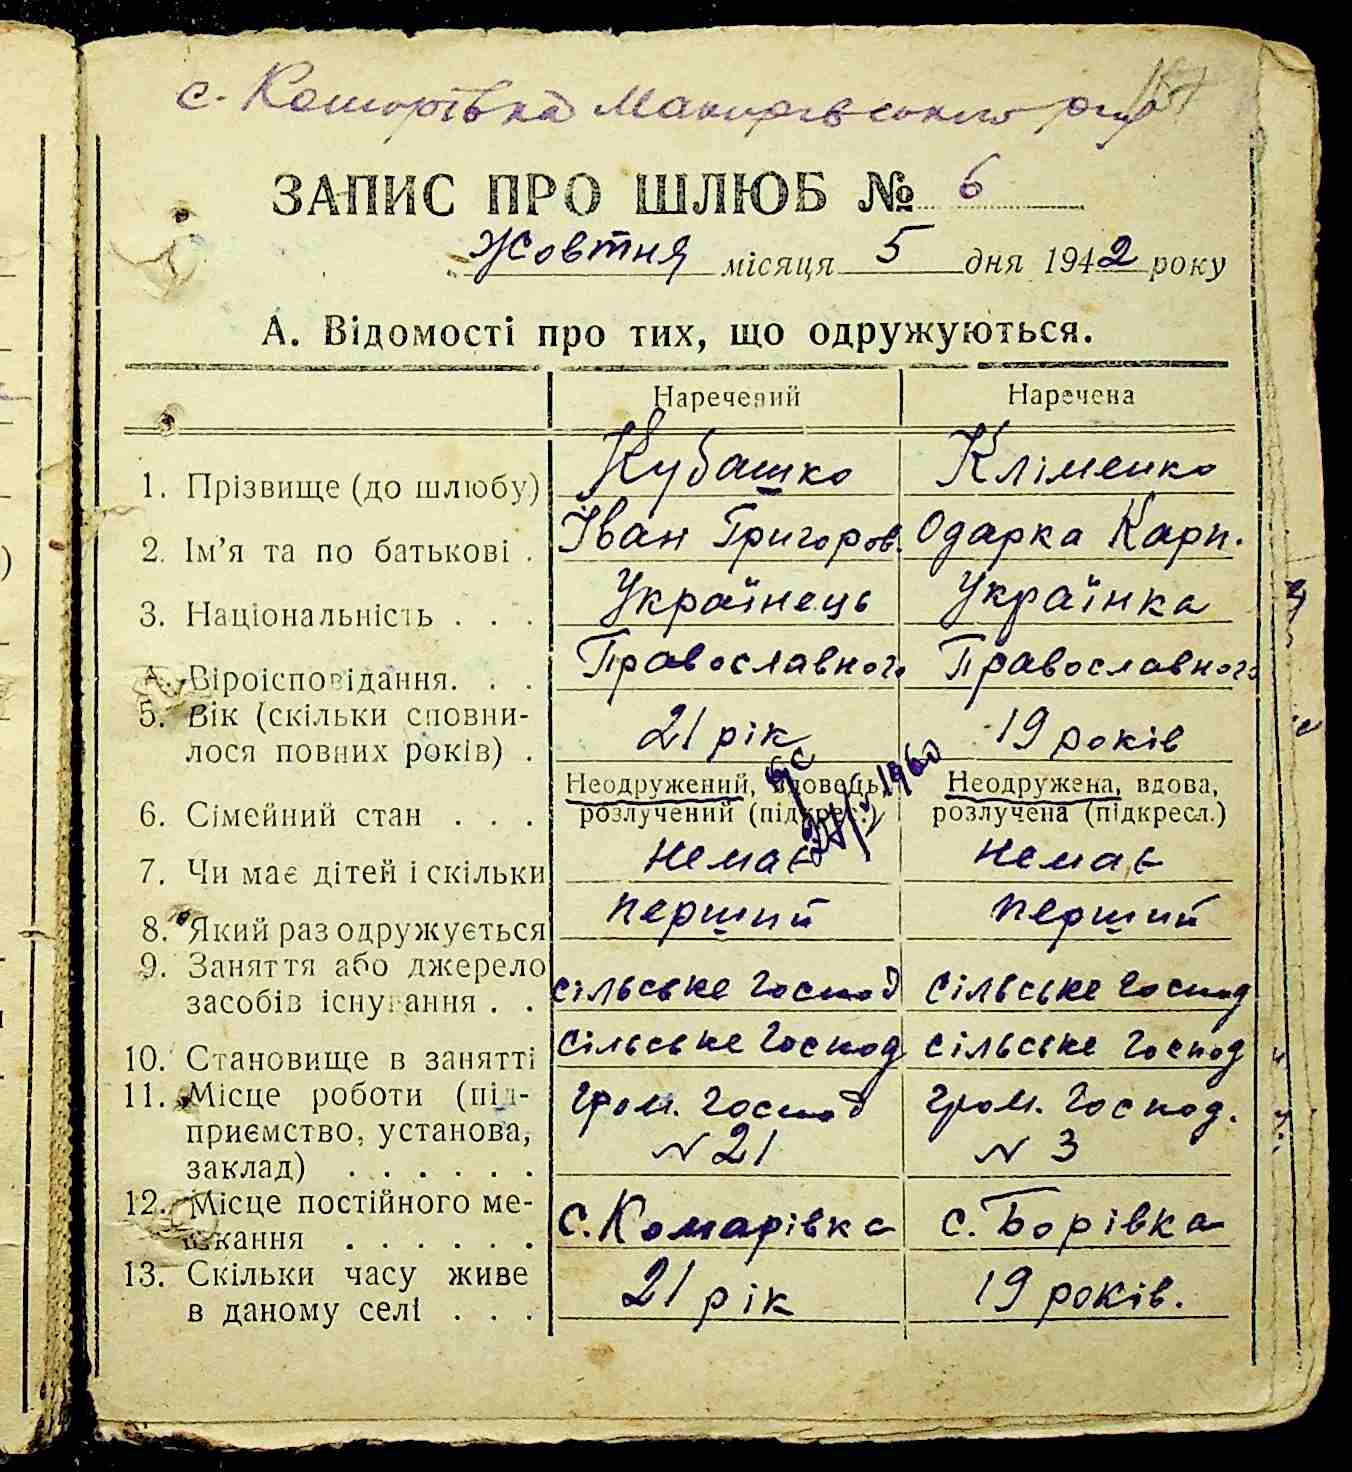 с. Комарівка Макарівського р-ну
ЗАПИС ПРО ШЛЮБ № 6
Жовтня місяця 5 дня 1942 року
А. Відомості про тих, що одружуються.
Наречений Наречена
1. Прізвище (до шлюбу) Кубашко Кліменко
2. Ім'я та по батькові . Іван Григоров. Одарка Карп.
3. Національність . . . Українець Українка
4. Віроісповідання. . . Православного Православного
5. Вік (скільки сповни-
лося повних років) . 21 рік 19 років
Неодружений, вдовець, Неодружена, вдова,
6. Сімейний стан . . . розлучений (підкресл.) розлучена (підкресл.)
1960
7. Чи має дітей і скільки немає немає
8. Який раз одружується перший перший
9. Заняття або джерело
засобів існування . . сільське господ сільське господ
10. Становище в занятті сільське господ сільське господ
11. Місце роботи (під- гром. господ гром. господ.
приємство, установа, N 21 N 3
заклад) . . . . . .
12. Місце постійного ме-
шкання . . . . . . с. Комарівка с. Борівка
13. Скільки часу живе
в даному селі . . . 21 рік 19 років.